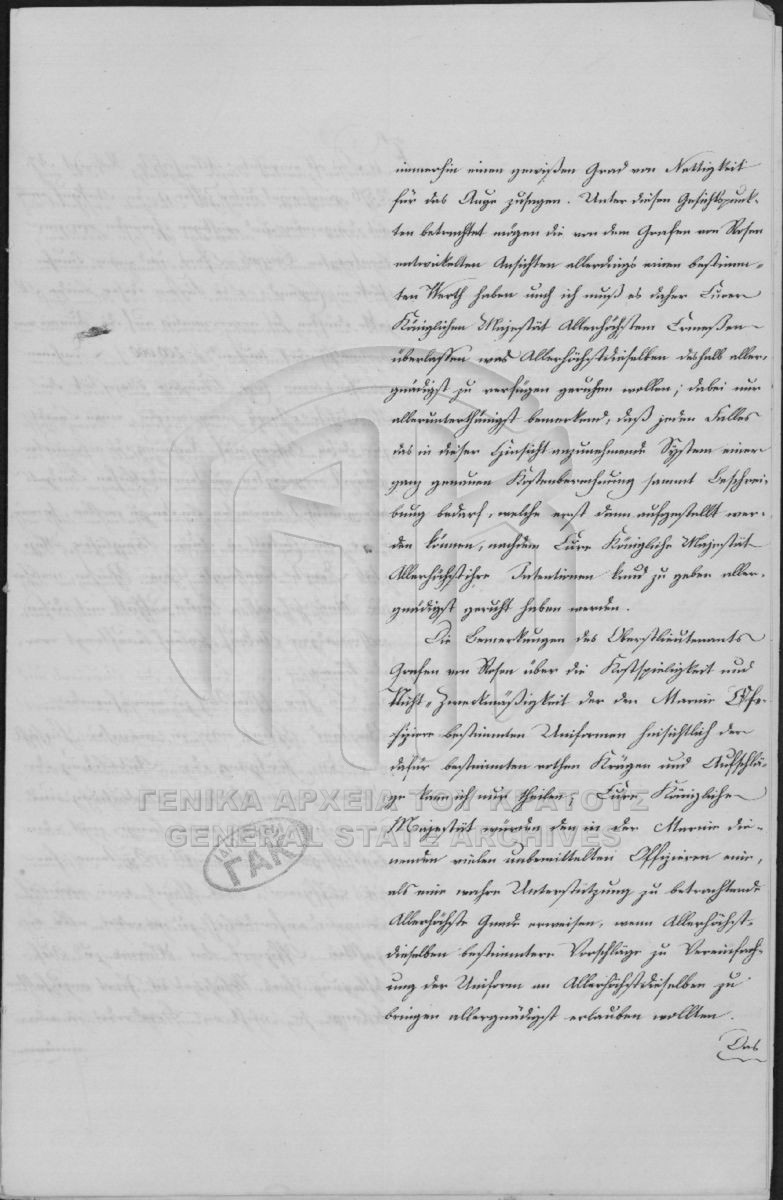 immerhin einen gewißen Grad von Nettigkeit
für das Auge zusagen. Unter diesen Gesichtspunk-
ten betrachtet mögen die von dem Grafen von Rosen
entwickelten Ansichten allerdings einen bestimm-
ten Werth haben und ich muß es daher Eurer
Königlichen Majestät Allerhöchstem Ermeßen
überlassen was Allerhöchstdieselben deshalb aller-
gnädigst zu verfügen geruhen wollen; dabei nur
allerunterthänigst bemerkend, daß jeden Falles
das in dieser Hinsicht anzunehmende System einer
ganz genauen Kostenberechnung sammt Beschrei-
bung bedarf, welche erst dann aufgestellt wer-
den können, nachdem Eure Königliche Majestät
Allerhöchst ihre Intentionen kund zu geben aller-
gnädigst geruht haben werden.
Die Bemerkungen des Oberstlieutenants
Grafen von Rosen über die Kostspieligkeit und
Nicht-Zweckmäßigkeit der den Marine Offi-
zieren bestimmten Uniformen hinsichtlich der
dafür bestimmten rothen Krägen und Aufschlä-
ge kann ich nur theilen; Eure Königliche
Majestät würden den in der Marine die-
nenden vielen unbemittelten Offizieren eine,
als eine wahre Unterstützung zu betrachtende
Allerhöchste Gnade erweisen, wenn Allerhöchst-
dieselben bestimmtere Vorschläge zu Vereinfach-
ung der Uniform an Allerhöchstdieselben zu
bringen allergnädigst erlauben wollten.
Das
ΓΕΝΙΚΑ ΑΡΧΕΙΑ ΤΟΥ ΚΡΑΤΟΥΣ
GENERAL STATE ARCHIVES
ΓΑΚ